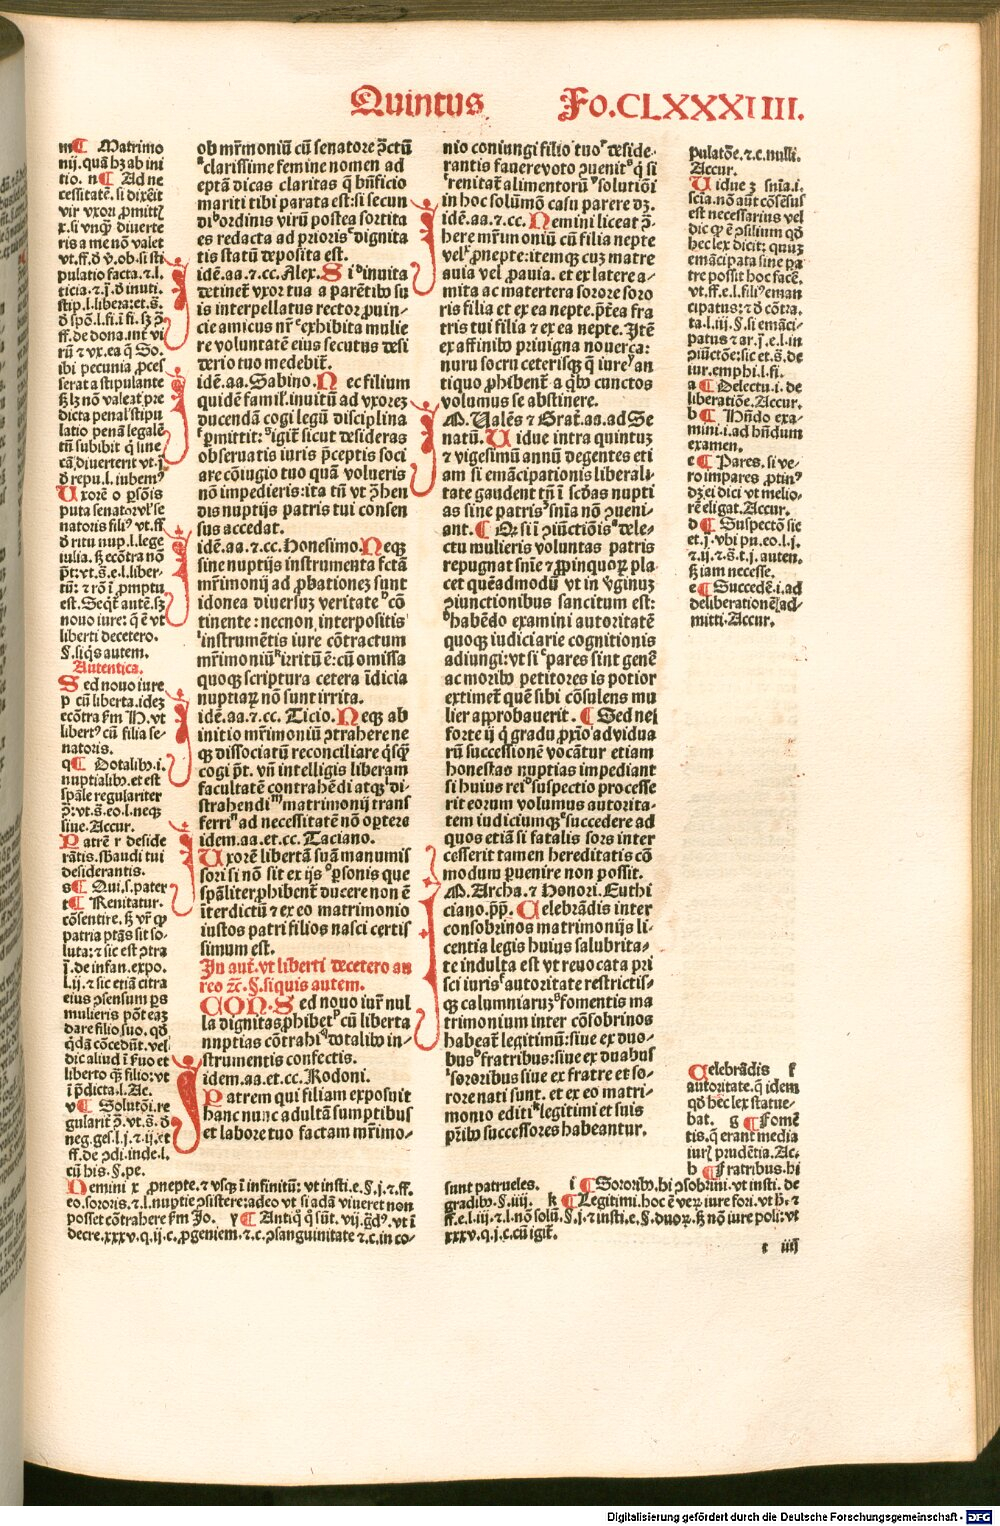 Quintus Fo.CLXXXIIII.
m¶ Matrimo
nij. quā hꝫ ab ini
tio. n¶ Ad ne
cessitatē. si dixeit
vir vxori ꝓmittꝫ
x. si vnqꝫ diuerte
ris a me nō valet
vt. ff. ꝺ ꝟ. ob. li sti
pulatio facta. ⁊ l.
ticia. ⁊ j. ꝺ inuti.
stip. l. libera: et. s̄.
ꝺ spō. l. fi. ī fi. sꝫ ꝓ̄
ff. de dona. int̄ vi
rū ⁊ vx. ea q̄ So.
ibi pecunia ꝓces
serat a stipulante
ꝫ lꝫ nō valeat pre
dicta penał stipu
latio penā legalē
tn̄ subibit q̄ sine
cā diuerterit vt. j.
ꝺ repu. l. iubemꝰ
Uxorē o ꝑsōis
puta senatorꝰ ł se
natoris filiꝰ vt. ff
ꝺ ritu nup. l. lege
iulia. ꝫ ecōtra nō
p̄t: vt. s̄. e. l. liber-
tū: ⁊ rō ī ꝓmptu
est. Seqt̄ autē. sꝫ
nouo iure: q̄ ē vt
liberti decetero.
§. siq̄s autem.
Autentica.
Sed nouo iure
p cū liberta. ideꝫ
ecōtra ẜm H. vt
libertꝰ cū filia se-
natoris.
q¶ Dotalibꝰ. i.
nuptialibꝰ. et est
spāle regulariter
ꝓ̄: vt. s̄. eo. l. neqꝫ
siue. Accur.
Patrē r deside
rātis. s. baudi tui
desiderantis.
s¶ Qui. s. pater
t¶ Renitatur.
cōsentire. ꝫ vr̄ ꝙ
patria ptās sit so-
luta: ⁊ sic est ꝯtra
j̄. de infan. expo.
l. ij. ⁊ sic etiā citra
eius ꝯsensum ꝑs
mulieris pōt eaꝫ
dare filio suo. qd̄
q̄dā cōcedūt. vel
dic aliud ī ẜuo et
liberto qꝫ filio: vt
ī p̄dicta. l. Ac.
v¶ Solutōi. re
gularit̄ ꝓ̄. vt. s̄. ꝺ
neg. ges. l. j. ⁊ ij. et
ff. de ꝯdi. inde. l.
cū his. §. pe.
ob mr̄moniū cū senatore ꝯctū
clarissime femine nomen ad
eptā dicas claritas q̄ bn̄ficio
mariti tibi parata est: si secun
di ordinis virū postea sortita
es redacta ad prioris dignita
tis statū deposita est.
idē. aa. ⁊ cc. Alex. Si inuita
detinet̄ vxor tua a parētibꝰ su
is interpellatus rector ꝓuin-
cie amicus nr̄ exhibita mulie
re voluntatē eius secutus desi
derio tuo medebit̄.
idē. aa. Sabino. Nec filium
quidē famił. inuitū ad vxoreꝫ
ducendā cogi legū disciplina
ꝑmittit: igit̄ sicut desideras
obseruatis iuris p̄ceptis soci
are cōiugio tuo quā volueris
nō impedieris: ita tn̄ vt ꝯ̄hen
dis nuptijs patris tui consen
sus accedat.
idē. aa. ⁊ cc. Honesimo. Neqꝫ
sine nuptijs instrumenta fctā
mr̄imonij ad ꝓbationeꝫ sunt
idonea diuersuꝫ veritate cō
tinente: necnon interpositis
instrumētis iure cōtractum
mr̄imoniū irritū ē: cū omissa
quoqꝫ scriptura cetera īdicia
nuptiaꝝ nō sunt irrita.
idē. aa. ⁊ cc. Ticio. Neqꝫ ab
initio mr̄imoniū ꝯtrahere ne
qꝫ dissociatū reconciliare q̄sqꝫ
cogi p̄t. vn̄ intelligis liberam
facultatē contrahēdi atqꝫ di-
strahendi matrimonij trans
ferri ad necessitatē nō oꝑtere
idem. aa. et. cc. Taciano.
Uxorē libertā suā manumis
sori si nō sit ex ijs ꝑsonis que
spāliter ꝓhibent̄ ducere non ē
īterdictū ⁊ ex eo matrimonio
iustos patri filios nasci certis
simum est.
In aut̄. vt liberti decetero au
reo ⁊c. §. si quis autem.
CON. Sed nouo iur̄ nul
la dignitas ꝓhibet cū liberta
nuptias cōtrahi dotalibꝰ in-
strumentis confectis.
idem. aa. et. cc. Rodoni.
Patrem qui filiam exposuit
hanc nunc adultā sumptibus
et labore tuo factam mr̄imo-
nio coniungi filio tuo deside-
rantis fauere voto ꝯuenit q̄ si
renitat̄ alimentorū solutiōi
in hoc solūmō casu parere dꝫ.
idē. aa. ⁊. cc. Nemini liceat ꝯ̄-
here mr̄imoniū cū filia nepte
vel ꝓnepte: itemqꝫ cuꝫ matre
auia vel ꝓauia. et ex latere a-
mita ac matertera sorore soro
ris filia et ex ea nepte. p̄tea fra
tris tui filia ⁊ ex ea nepte. Itē
ex affinibꝰ priuigna nouerca:
nuru socru ceterisqꝫ q̄ iure an
tiquo ꝓhibent̄ a qbꝰ cunctos
volumus se abstinere.
M. Ualēs ⁊ Grat̄. aa. ad Se
natū. Uidue intra quintuꝫ
⁊ vigesimū annū degentes eti
am si emācipationis liberali-
tate gaudent tn̄ ī scd̄as nupti
as sine patris snīa nō ꝯueni-
ant. ¶ Qr si ī ꝯiūctiōis dele-
ctu mulieris voluntas patris
repugnat snīe ⁊ ꝓpinquoꝝ pla
cet quēadmodū vt in v̄ginuꝫ
ꝯiunctionibus sancitum est:
habēdo examini autoritatē
quoqꝫ iudiciarie cognitionis
adiungi: vt si pares sint genē
ac moribꝰ petitores is potior
extimet̄ quē sibi cōsulens mu
lier approbauerit. ¶ Sed ne
forte ij q̄ gradu ꝓxīo ad vidua
rū successionē vocātur etiam
honestas nuptias impediant
si huius rei suspectio processe
rit eorum volumus autorita-
tem iudiciumqꝫ succedere ad
quos etiā si fatalis sors inter
cesserit tamen hereditatis cō
modum ꝑuenire non possit.
M. Archa. ⁊ Honori. Euthi
ciano. pp̄. Celebrādis inter
consobrinos matrimonijs li-
centia legis huius salubrita-
te indulta est vt reuocata pri
sci iuris autoritate restrictis-
qꝫ calumniaruꝫ fomentis ma
trimonium inter cōsobrinos
habeat̄ legitimū: siue ex duo-
bus fratribus: siue ex duabus
sororibus siue ex fratre et so-
rore nati sunt. et ex eo matri-
monio editi legitimi et suis
pr̄ibꝰ successores habeantur.
pulatōe. ⁊. c. nulli.
Accur.
Uidue ꝫ snīa. i.
scīa. nō aūt cōsēsus
est necessarius vel
dic ꝙ ē ꝯsilium qd̄
hec lex dicit: quuꝫ
emācipata sine pa
tre possit hoc facē.
vt. ff. e. l. filiꝰ eman
cipatus: ⁊ ꝺ cōtra.
ta. l. iij. §. si emāci-
patus ⁊ ar. j̄. e. l. in
ꝯiūctōe: sic et. s̄. de
iur. emphi. l. fi.
a ¶ Delectu. i. de
liberatiōe. Accur.
b¶ Hn̄do exa
mini. i. ad hn̄dum
examen.
c¶ Pares. si ve-
ro impares ꝓtinꝰ
dꝫ ei dici vt melio-
rē eligat. Accur.
d¶ Suspectō sic
et. j̄. vbi pu. eo. l. j.
⁊. ij. ⁊. s̄. t. j. auten.
ꝫ iam necesse.
e¶ Succedē. i. ad
deliberationē ad-
mitti. Accur.
Celebrādis f
autoritate. q̄ idem
qd̄ hec lex statue-
bat. g ¶ Fomē
tis. q̄ erant media
iurꝫ prudētia. Ac.
h ¶ Fratribus. hi
Nemini x ꝓnepte. ⁊ vsqꝫ ī infinitū: vt insti. e. §. j. ⁊. ff.
eo. sororis. ⁊. l. nuptie ꝯsistere: adeo vt si adā viueret non
posset cōtrahere ẜm Jo. y¶ Antiq̄ q̄ sūt. vij. gd̄ꝰ. vt ī
decre. xxxv. q. ij. c. ꝓgeniem. ⁊. c. ꝯsanguinitate ⁊. c. in co-
sunt patrueles. i ¶ Sororibꝰ. hi ꝯsobrini. vt insti. de
gradibꝰ. §. iiij. k ¶ Legitimi. hoc ē veꝝ iure fori. vt h̄. ⁊
ff. e. l. iij. ⁊ l. nō solū. §. j. ⁊ insti. e. §. duoꝝ. ꝫ nō iure poli: vt
xxxv. q. j. c. cū igit̄.
t iiij
Digitalisierung gefördert durch die Deutsche Forschungsgemeinschaft - DFG